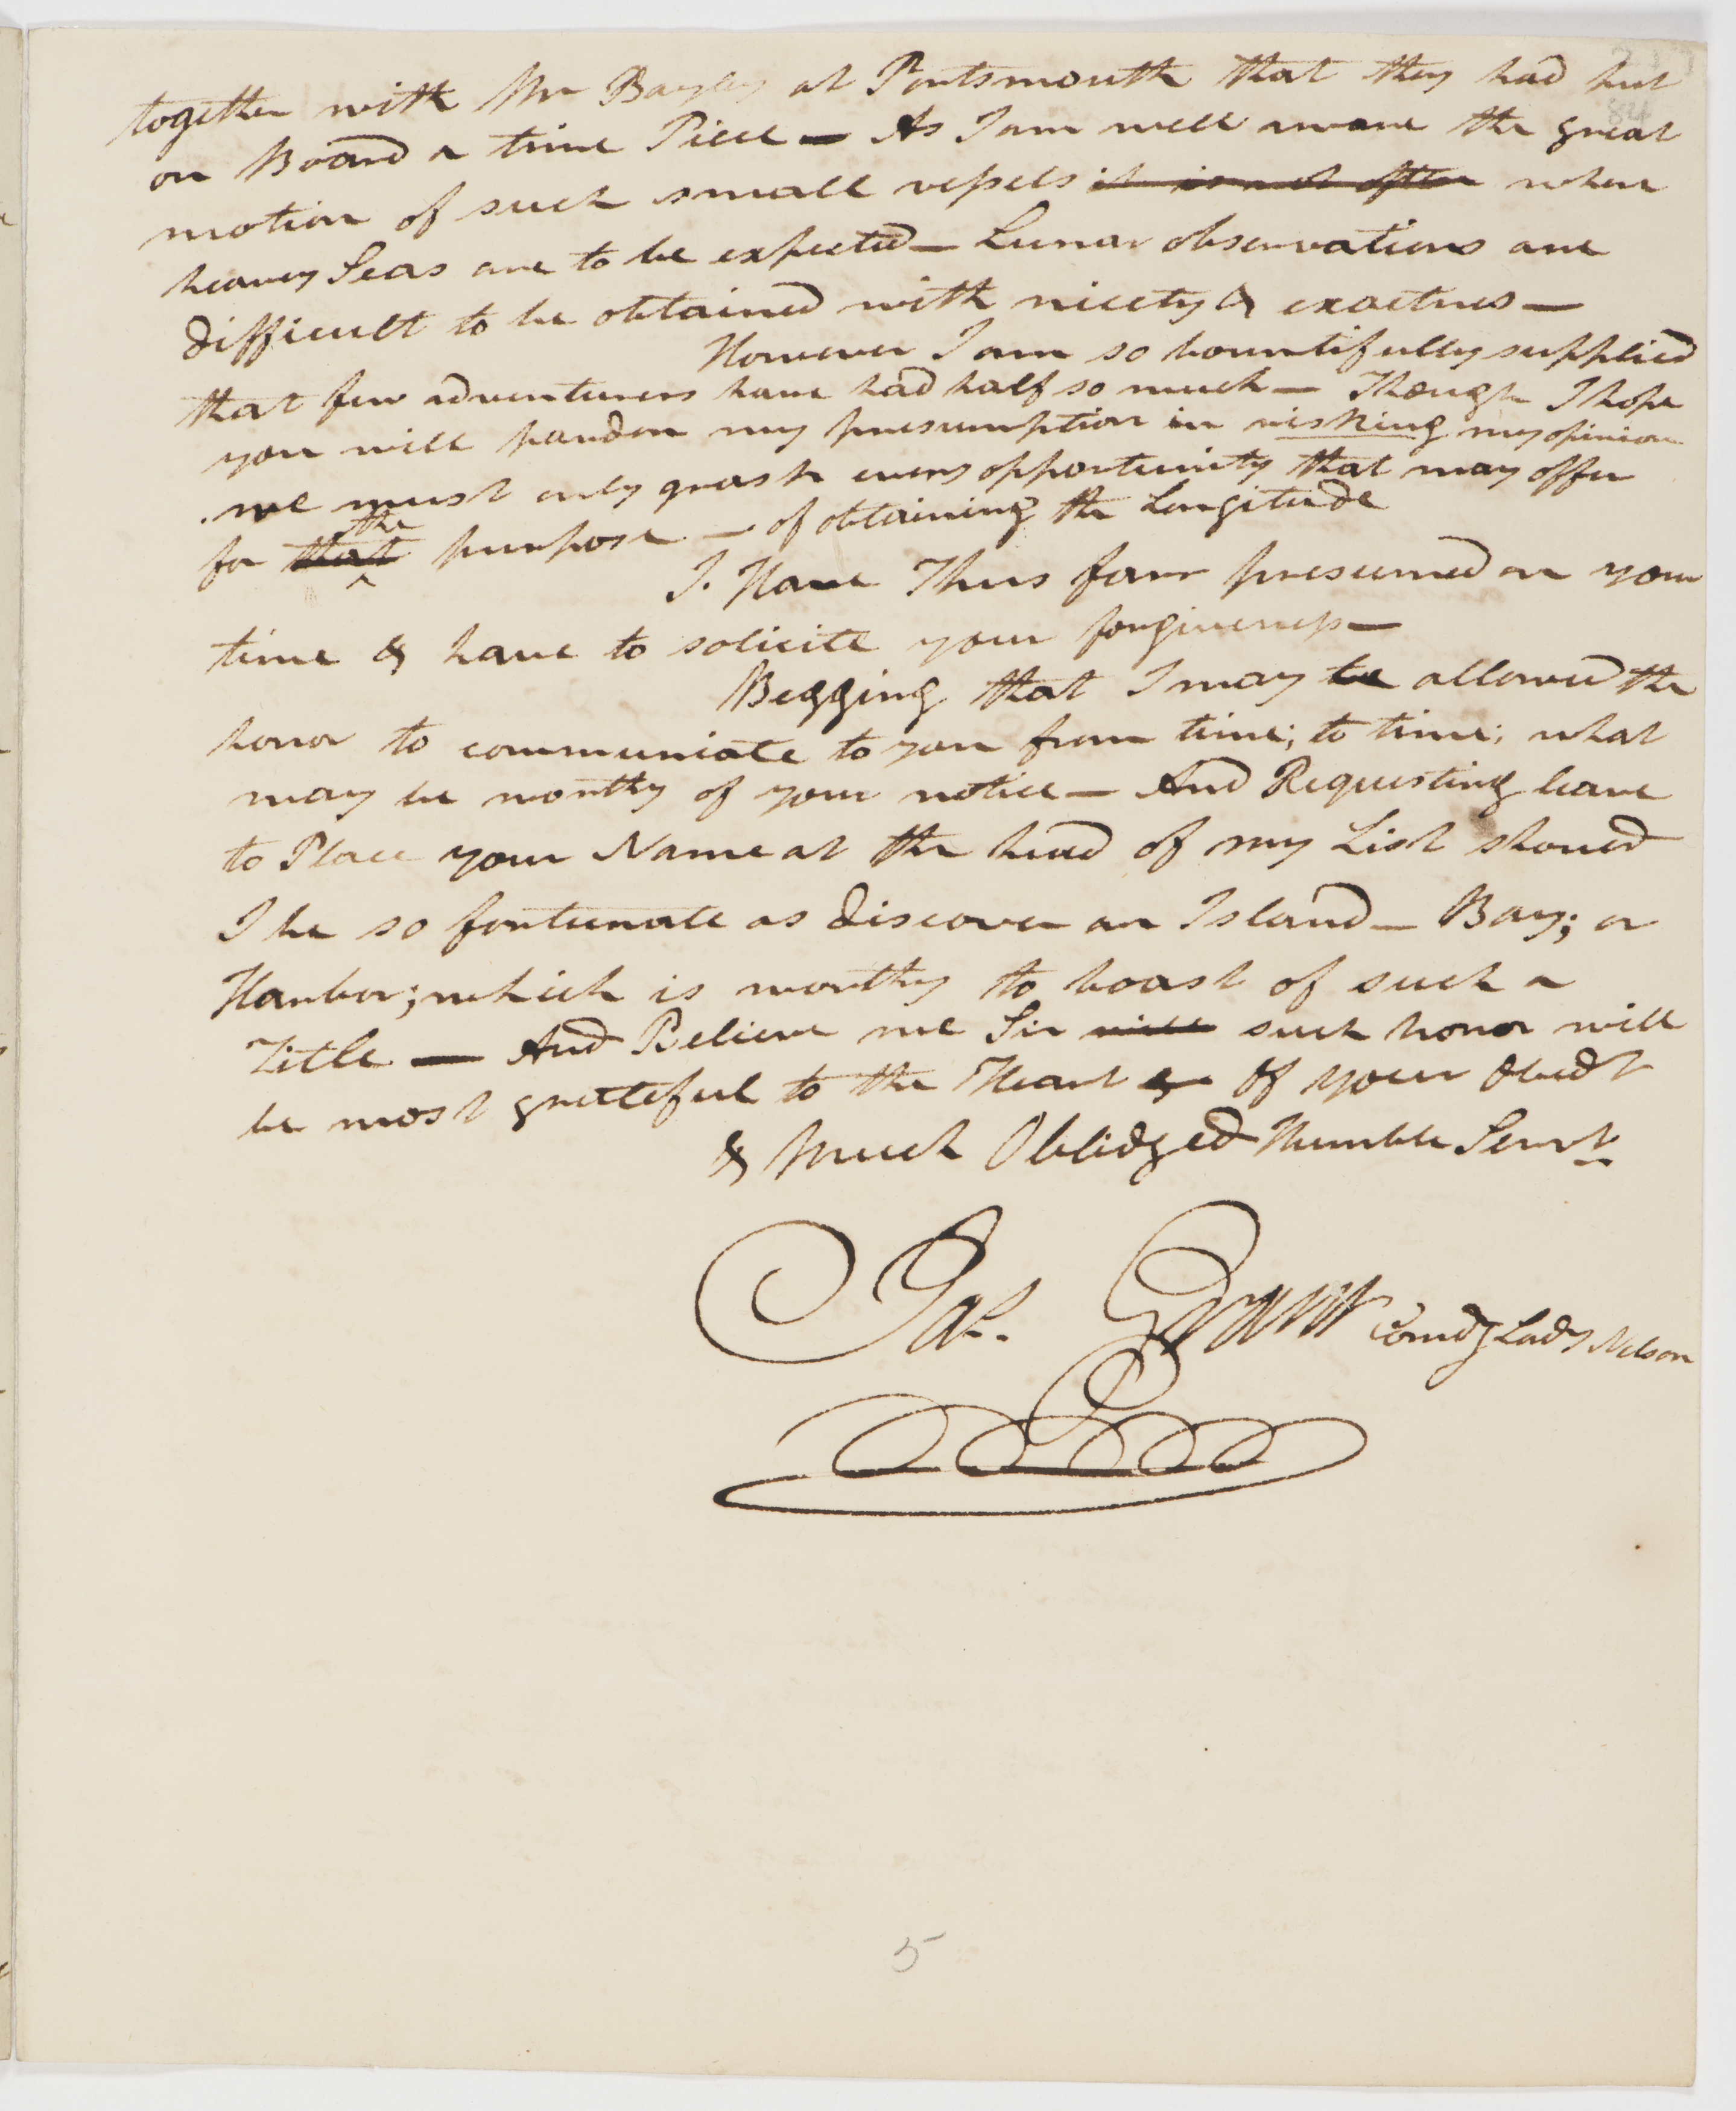 84
together with Mr Bayley at Portsmouth that they had put
on Board a time Piece — As I am well aware the great
motion of such small vessels it is not often when
heavey Seas are to be expected — Lunar observations are
difficult to be obtained with nicety & exactnes —
However I am so bountifully supplied
that few adventurers have had half so much — Though I hope
you will pardon my presumption in risking my opinion
we must only grasp every opportunity that may offer
the
for that purpose — of obtaining the Longitude
I. Have Thus farr presumed on your
time & have to solicite your forgiveness —
Begging that I may be allowed the
honor to communicate to you from time; to time; what
may be worthy of your notice — And Requesting leave
to Place your Name at the head of my List should
I be so fortunate as discover an Island — Bay; or
Harbor; which is worthy to boast of such a
Title — And Believe me Sir will such honor will
be most grateful to the Heart Of your Obedt
& Much Oblidged Humble Servt
Jas. Grant Comdg Lady Nelson
5